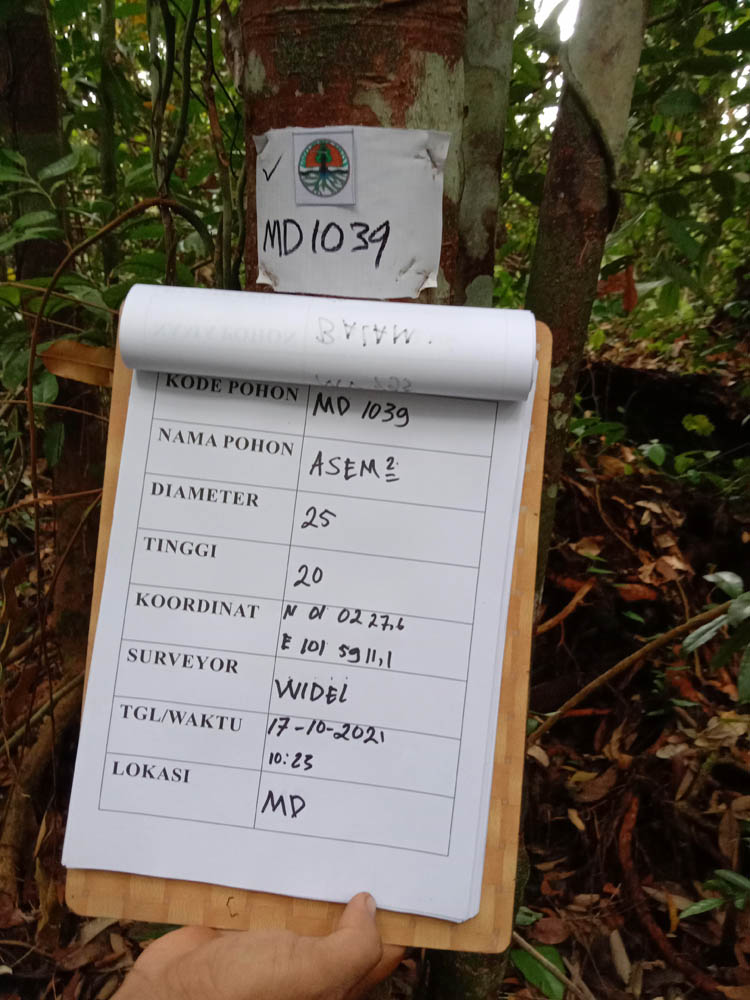 ✓
MD1039
BALAW.
KODE POHON MD 1039
NAMA POHON ASEM2
DIAMETER 25
TINGGI 20
KOORDINAT N 01 02 27,6
E 101 59 11,1
SURVEYOR WIDEL
TGL/WAKTU 17-10-2021
10:23
LOKASI MD